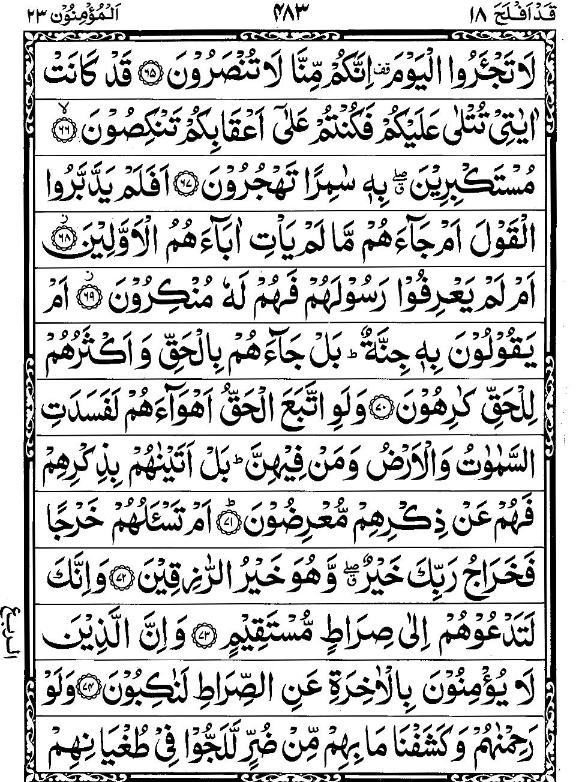 قَدْ اَفْلَحَ ١٨ ٤٨٣ اَلْمُؤْمِنُوْن ٢٣
لَا تَجْـَٔرُوا الْيَوْمَ ۫ اِنَّكُمْ مِّنَّا لَا تُنْصَرُوْنَ ﴿٦٥﴾ قَدْ كَانَتْ
اٰيٰتِيْ تُتْلٰى عَلَيْكُمْ فَكُنْتُمْ عَلٰٓى اَعْقَابِكُمْ تَنْكِصُوْنَ ﴿٦٦﴾ۙ
مُسْتَكْبِرِيْنَ ۖۗ بِهٖ سٰمِرًا تَهْجُرُوْنَ ﴿٦٧﴾ اَفَلَمْ يَدَّبَّرُوا
الْقَوْلَ اَمْ جَآءَهُمْ مَّا لَمْ يَاْتِ اٰبَآءَهُمُ الْاَوَّلِيْنَ ﴿٦٨﴾ؗ
اَمْ لَمْ يَعْرِفُوْا رَسُوْلَهُمْ فَهُمْ لَهٗ مُنْكِرُوْنَ ﴿٦٩﴾ؗ اَمْ
يَقُوْلُوْنَ بِهٖ جِنَّةٌ ؕ بَلْ جَآءَهُمْ بِالْحَقِّ وَاَكْثَرُهُمْ
لِلْحَقِّ كٰرِهُوْنَ ﴿٧٠﴾ وَلَوِ اتَّبَعَ الْحَقُّ اَهْوَآءَهُمْ لَفَسَدَتِ
السَّمٰوٰتُ وَالْاَرْضُ وَمَنْ فِيْهِنَّ ؕ بَلْ اَتَيْنٰهُمْ بِذِكْرِهِمْ
فَهُمْ عَنْ ذِكْرِهِمْ مُّعْرِضُوْنَ ﴿٧١﴾ؕ اَمْ تَسْـَٔلُهُمْ خَرْجًا
فَخَرَاجُ رَبِّكَ خَيْرٌ ۖۗ وَّهُوَ خَيْرُ الرّٰزِقِيْنَ ﴿٧٢﴾ وَاِنَّكَ
لَتَدْعُوْهُمْ اِلٰى صِرَاطٍ مُّسْتَقِيْمٍ ﴿٧٣﴾ وَاِنَّ الَّذِيْنَ
لَا يُؤْمِنُوْنَ بِالْاٰخِرَةِ عَنِ الصِّرَاطِ لَنٰكِبُوْنَ ﴿٧٤﴾ وَلَوْ
رَحِمْنٰهُمْ وَكَشَفْنَا مَا بِهِمْ مِّنْ ضُرٍّ لَّلَجُّوْا فِيْ طُغْيَانِهِمْ
الربع